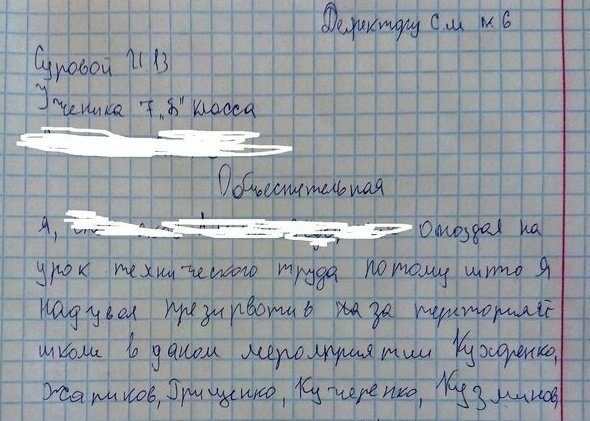 Деректору см № 6
Суровой И В
Ученика 7 „Б" класса
Добъеснительная
Я, опоздал на
урок технического труда потому што Я
надувал презирвотив за территорияй
школи в даном мероприятии Кухаренко,
Жариков, Грищенко, Кучеренко, Кузминов,